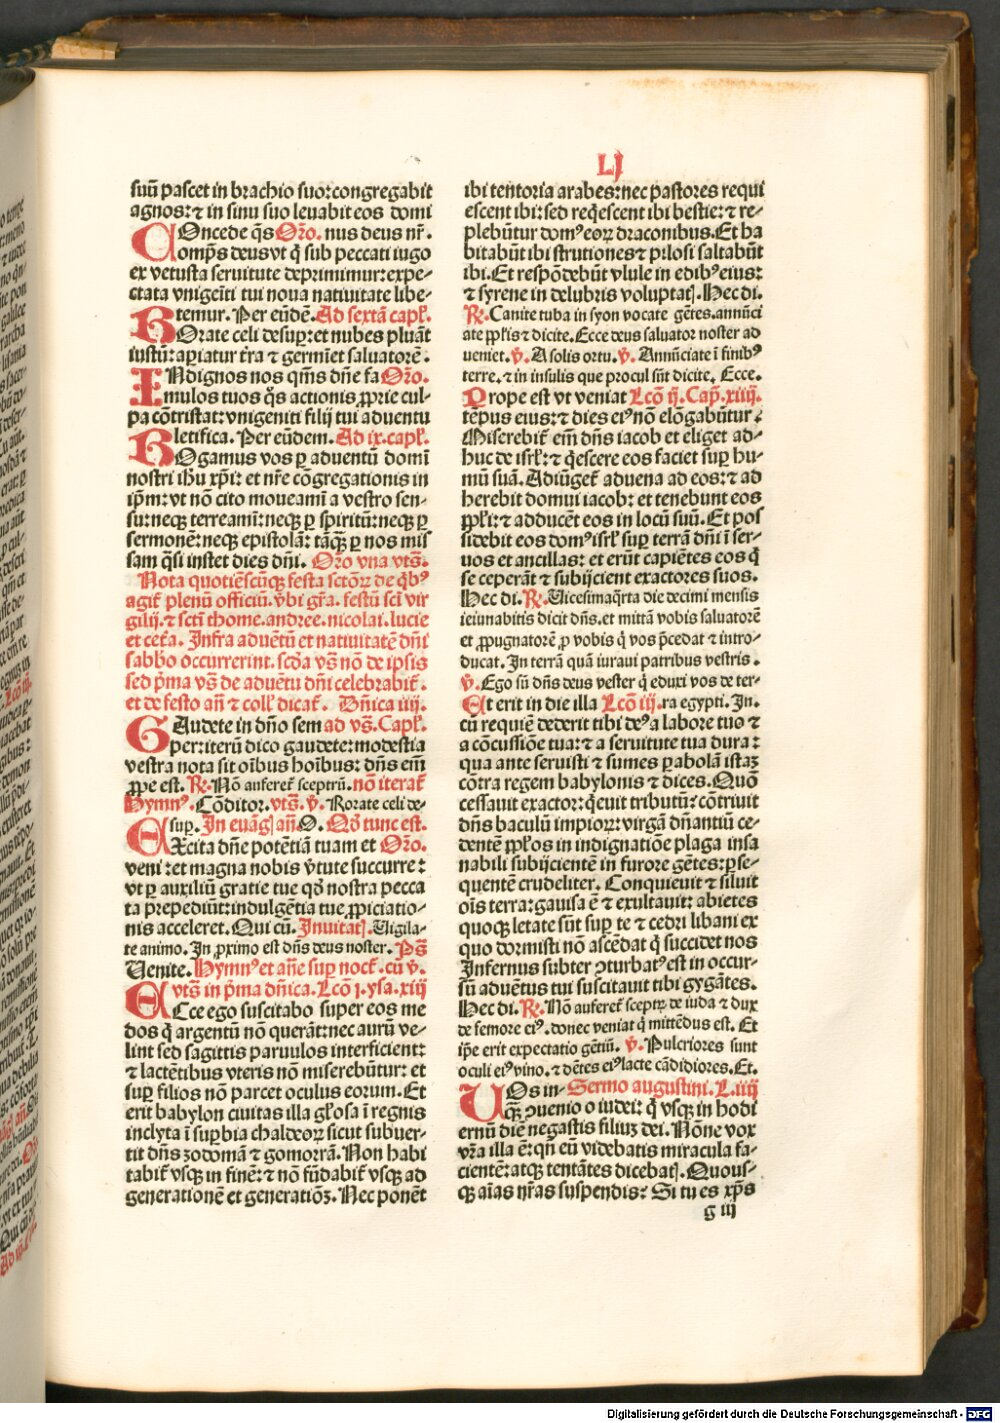 LJ
suū pascet in brachio suo: congregabit
agnos: ⁊ in sinu suo leuabit eos domi
COncede q̄s Or̄o. nus deus nr̄.
omp̄s deus vt q̄ sub peccati iugo
ex vetusta seruitute deprimimur: expe⸗
ctata vnigeniti tui noua natiuitate libe⸗
temur. Per eūdē. Ad sextā capl'.
ROrate celi desup̱: et nubes pluāt
iustū: apiatur t̄ra ⁊ germīet saluatorē.
INdignos nos q̄m̄s dn̄e fa Or̄o.
mulos tuos q̄s actionis ꝓprie cul⸗
pa cōtristat: vnigeniti filij tui aduentu
letifica. Per eūdem. Ad ix. capl'.
ROgamus vos ꝑ aduentū domī
nostri ihū xp̄i: et nr̄e cōgregationis in
ip̄m: vt nō cito moueamī a vestro sen⸗
su: neqꝫ terreamī: neqꝫ ꝑ spiritū: neqꝫ ꝑ
sermonē: neqꝫ epistolā: tāqꝫ̄ ꝑ nos mis
sam q̄si instet dies dn̄i. Or̄o vna vts̄.
Nota quotiēscūqꝫ festa sctōꝝ de qͥbꝰ
agit̄ plenū officiū. vbi gr̄a. festū sc̄i vir
gilij. ⁊ sctī thome. andree. nicolai. lucie
et cet̄a. Infra aduētū et natiuitatē dn̄i
sabb̄o occurrerint. scd̄a vs̄ nō de ipsis
sed p̄ma vs̄ de aduētu dn̄i celebrabit̄.
et de festo an̄ ⁊ coll' dicat̄. Dn̄ica iiij.
GAudete in dn̄o sem ad vs̄. Capl'.
per: iterū dico gaudete: modestia
vestra nota sit oībus hoībus: dn̄s em̄
ꝓpe est. ℟. Nō auferet̄ sceptrū. nō iterat̄
Hymnꝰ. Cōditor. vts̄. ℣. Rorate celi de⸗
sup̱. In euāg̱ an̄. O. Qd̄ tunc est.
EXcita dn̄e potētiā tuam et Or̄o.
veni: et magna nobis v̄tute succurre:
vt ꝑ auxiliū gratie tue qd̄ nostra pecca
ta prepediūt: indulgētia tue ꝓpiciatio⸗
nis acceleret. Qui cū. Inuitat̄. Uigila⸗
te animo. In ꝓximo est dn̄s deus noster. Ps̄
Uenite. Hymnꝰ et an̄e sup̱ noct̄. cū ℣.
vts̄ in p̄ma dn̄ica. Lcō j. ysa. xiij
ECce ego suscitabo super eos me
dos q̄ argentū nō querāt: nec aurū ve⸗
lint sed sagittis paruulos interficient:
⁊ lactētibus vteris nō miserebūtur: et
sup̱ filios nō parcet oculus eorum. Et
erit babylon ciuitas illa gl'osa ī regnis
inclyta ī sup̱bia chaldeoꝝ sicut subuer⸗
tit dn̄s zodomā ⁊ gomorrā. Non habi
tabit̄ vsqꝫ in finē: ⁊ nō fūdabit̄ vsqꝫ ad
generationē et generatiōꝫ. Nec ponēt
ibi tentoria arabes: nec pastores requi
escent ibi: sed reqͥescent ibi bestie: ⁊ re⸗
plebūtur domꝰ eoꝝ draconibus. Et ha
bitabūt ibi strutiones ⁊ pilosi saltabūt
ibi. Et respōdebūt vlule in edibꝰ eius:
⁊ syrene in delubris voluptat̄. Hec di.
℟. Canite tuba in syon vocate gētes. annūci
ate ppl'is ⁊ dicite. Ecce deus saluator noster ad
ueniet. ℣. A solis ortu. ℣. Annūciate ī finibꝰ
terre. ⁊ in insulis que procul sūt dicite. Ecce.
PRope est vt veniat Lcō ij. Cap̄. xiiij.
tēpus eius: ⁊ dies eiꝰ nō elōgabūtur.
Miserebit̄ em̄ dn̄s iacob et eliget ad⸗
huc de isrl': ⁊ qͥescere eos faciet sup̱ hu⸗
mū suā. Adiūget̄ aduena ad eos: ⁊ ad
herebit domui iacob: et tenebunt eos
ppl'i: ⁊ adducēt eos in locū suū. Et pos
sidebit eos domꝰ isrl' sup̱ terrā dn̄i ī ser⸗
uos et ancillas: et erūt capiētes eos q̄
se ceperāt ⁊ subijcient exactores suos.
Hec di. ℟. Uicesimaq̄rta die decimi mensis
ieiunabitis dicit dn̄s. et mittā vobis saluatorē
et ꝓpugnatorē ꝓ vobis q̄ vos p̄cedat ⁊ intro⸗
ducat. In terrā quā iuraui patribus vestris.
℣. Ego sū dn̄s deus vester q̄ eduxi vos de ter⸗
Et erit in die illa Lcō iij. ra egypti. In.
cū requiē dederit tibi deꝰ a labore tuo ⁊
a cōcussiōe tua: ⁊ a seruitute tua dura:
qua ante seruisti ⁊ sumes ꝑabolā istaꝫ
cōtra regem babylonis ⁊ dices. Quō
cessauit exactor: qͥeuit tributū? cōtriuit
dn̄s baculū impioꝝ: virgā dn̄antiū ce⸗
dentē ppl'os in indignatiōe plaga insa
nabili subijcientē in furore gētes: ꝑse⸗
quentē crudeliter. Conquieuit ⁊ siluit
oīs terra: gauisa ē ⁊ exultauit: abietes
quoqꝫ letate sūt sup̱ te ⁊ cedri libani ex
quo dormisti nō ascēdat q̄ succidet nos
Infernus subter ꝯturbatꝰ est in occur⸗
sū aduētus tui suscitauit tibi gygātes.
Hec di. ℟. Nō auferet̄ sceptꝝ de iuda ⁊ dux
de femore eiꝰ. donec veniat q̄ mittēdus est. Et
ip̄e erit expectatio gētiū. ℣. Pulcriores sunt
oculi eiꝰ vino. ⁊ dētes eiꝰ lacte cādidiores. Et.
UOs in⸗ Sermo augustini. L. iiij
qꝫ̄ ꝯuenio o iudei: q̄ vsqꝫ in hodi
ernū diē negastis filiuꝫ dei. Nōne vox
vr̄a illa ē: qn̄ eū videbatis miracula fa⸗
cientē: atqꝫ tentātes dicebat̄. Quous⸗
qꝫ aīas nr̄as suspendis? Si tu es xp̄s
g iij
Digitalisierung gefördert durch die Deutsche Forschungsgemeinschaft - DFG